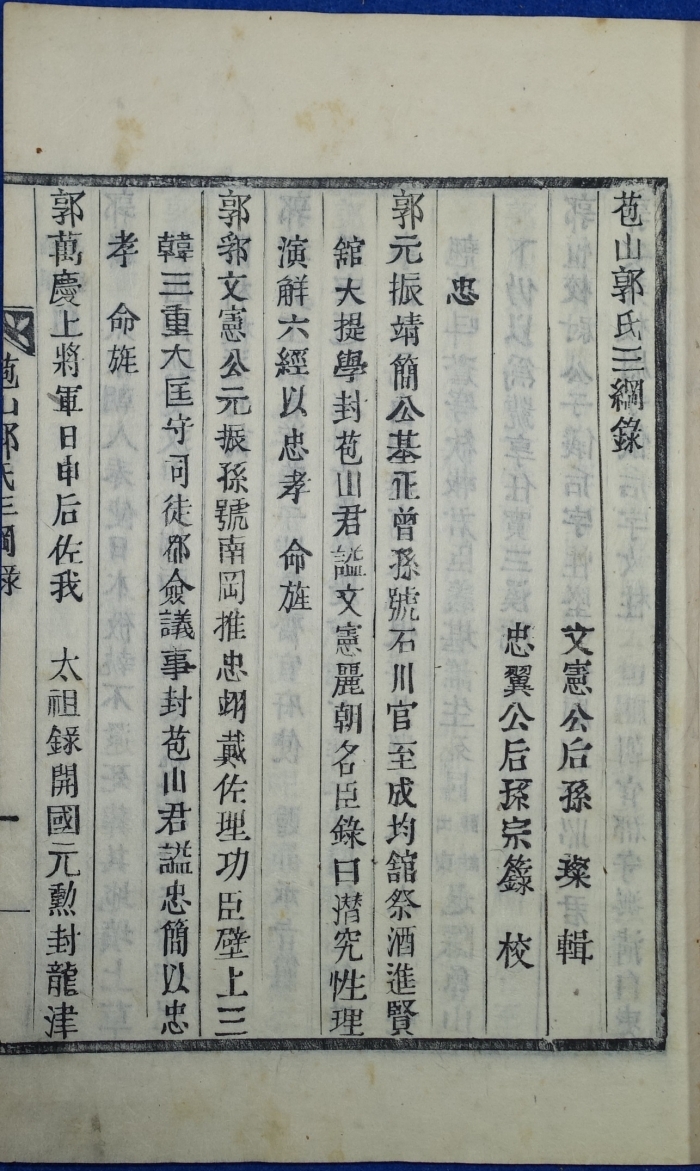 苞山郭氏三綱錄
文憲公后孫 璨 輯
忠翼公后孫宗籙 校
忠
郭元振靖簡公基正曾孫號石川官至成均舘祭酒進賢
舘大提學封苞山君諡文憲麗朝名臣錄曰潜究性理
演解六經以忠孝 命旌
郭郛文憲公元振孫號南岡推忠翊戴佐理功臣壁上三
韓三重大匡守司徒都僉議事封苞山君謚忠簡以忠
孝 命旌
郭萬慶上將軍日申后佐我 太祖錄開國元勲封龍津
苞山郭氏三綱錄
一